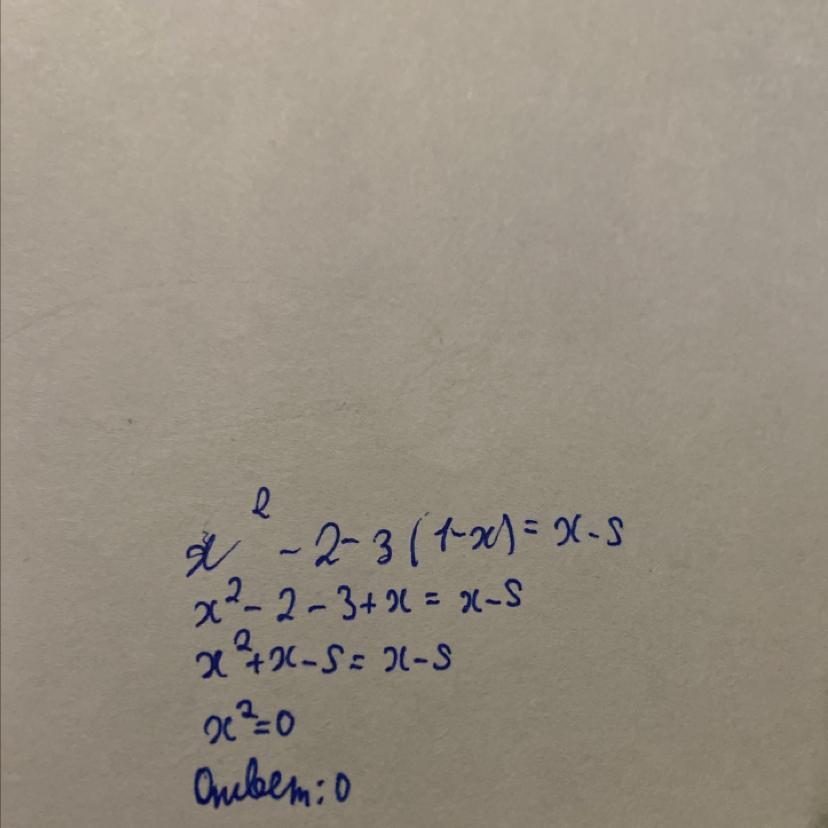 x² - 2 - 3(1-x) = x - 5
x² - 2 - 3 + x = x - 5
x² + x - 5 = x - 5
x² = 0
Ответ: 0